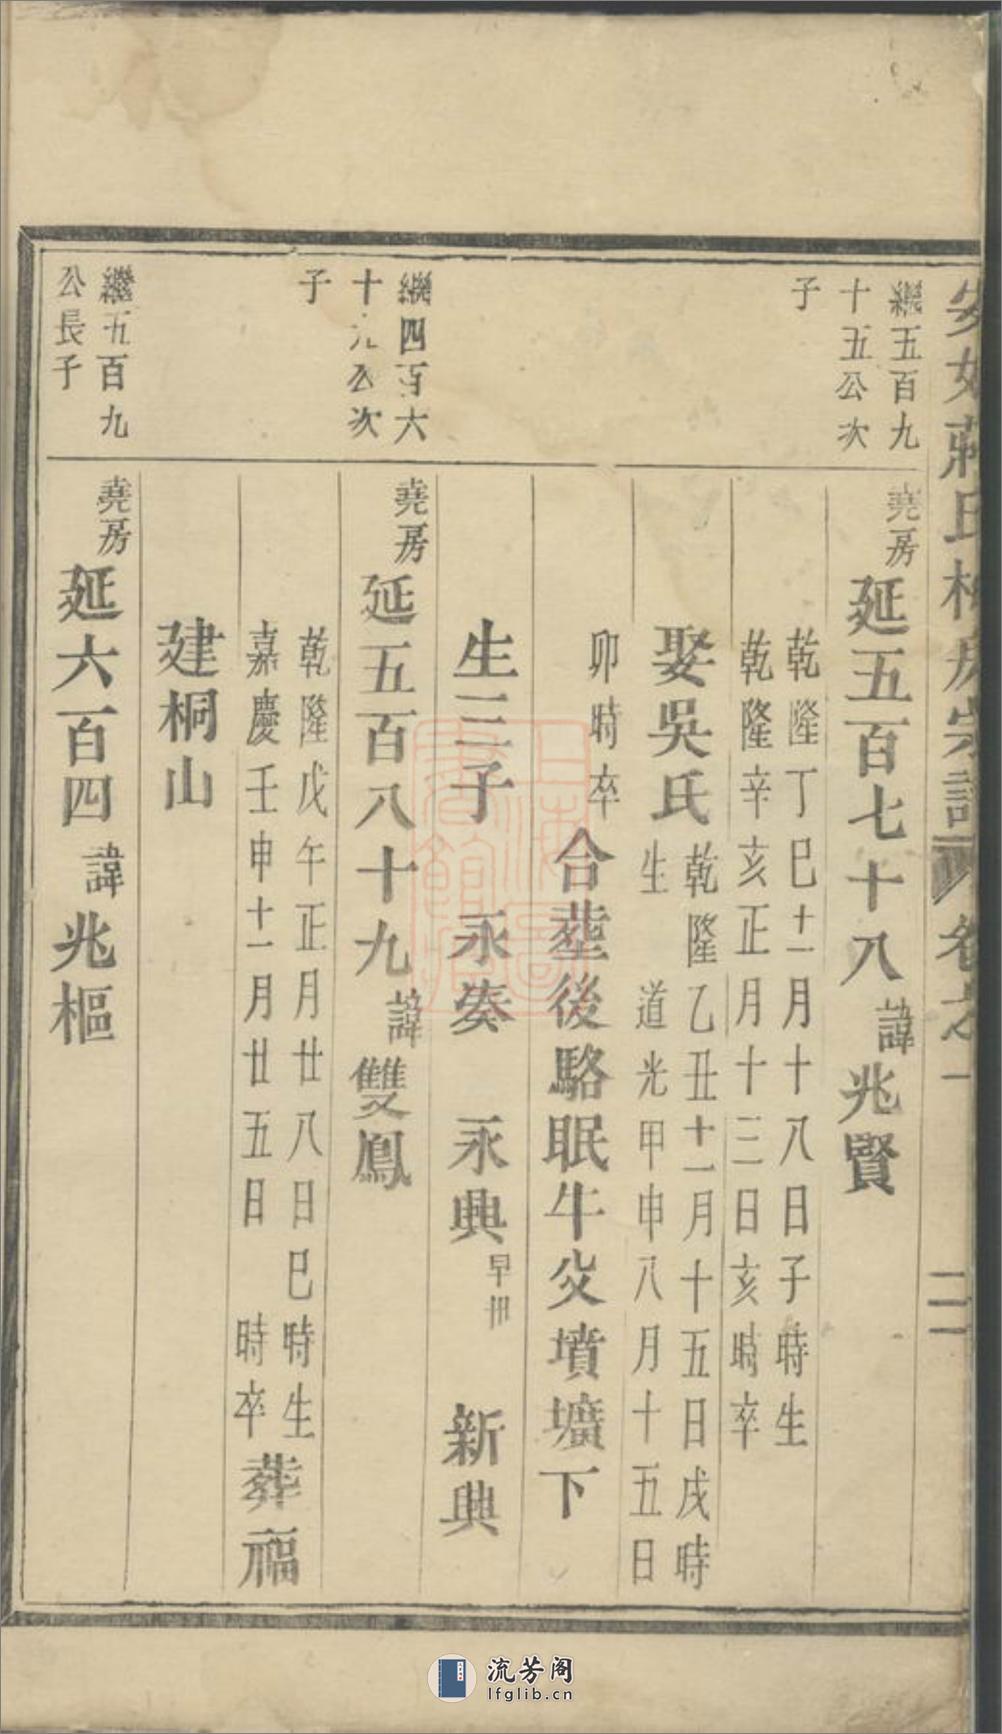 氏
宗譜
卷之一
二
繼五百九
十五公次
子
堯房
延五百七十八
諱
兆賢
乾隆丁巳十一月十八日子時生
乾隆辛亥正月十三日亥時卒
娶吳氏
乾隆乙丑十一月十五日戌時
生
道光甲申八月十五日
卯時卒
合塟後駱眠牛
墳壙下
生三子
永奏
永興
早卅
新興
繼四百六
十九公次
子
堯房
延五百八十九
諱
雙鳳
乾隆戊午正月廿八日巳時生
嘉慶壬申十一月廿五日
時卒
葬福
建桐山
繼五百九
公長子
堯房
延六百四
諱
兆樞
流芳阁
lfglib.cn